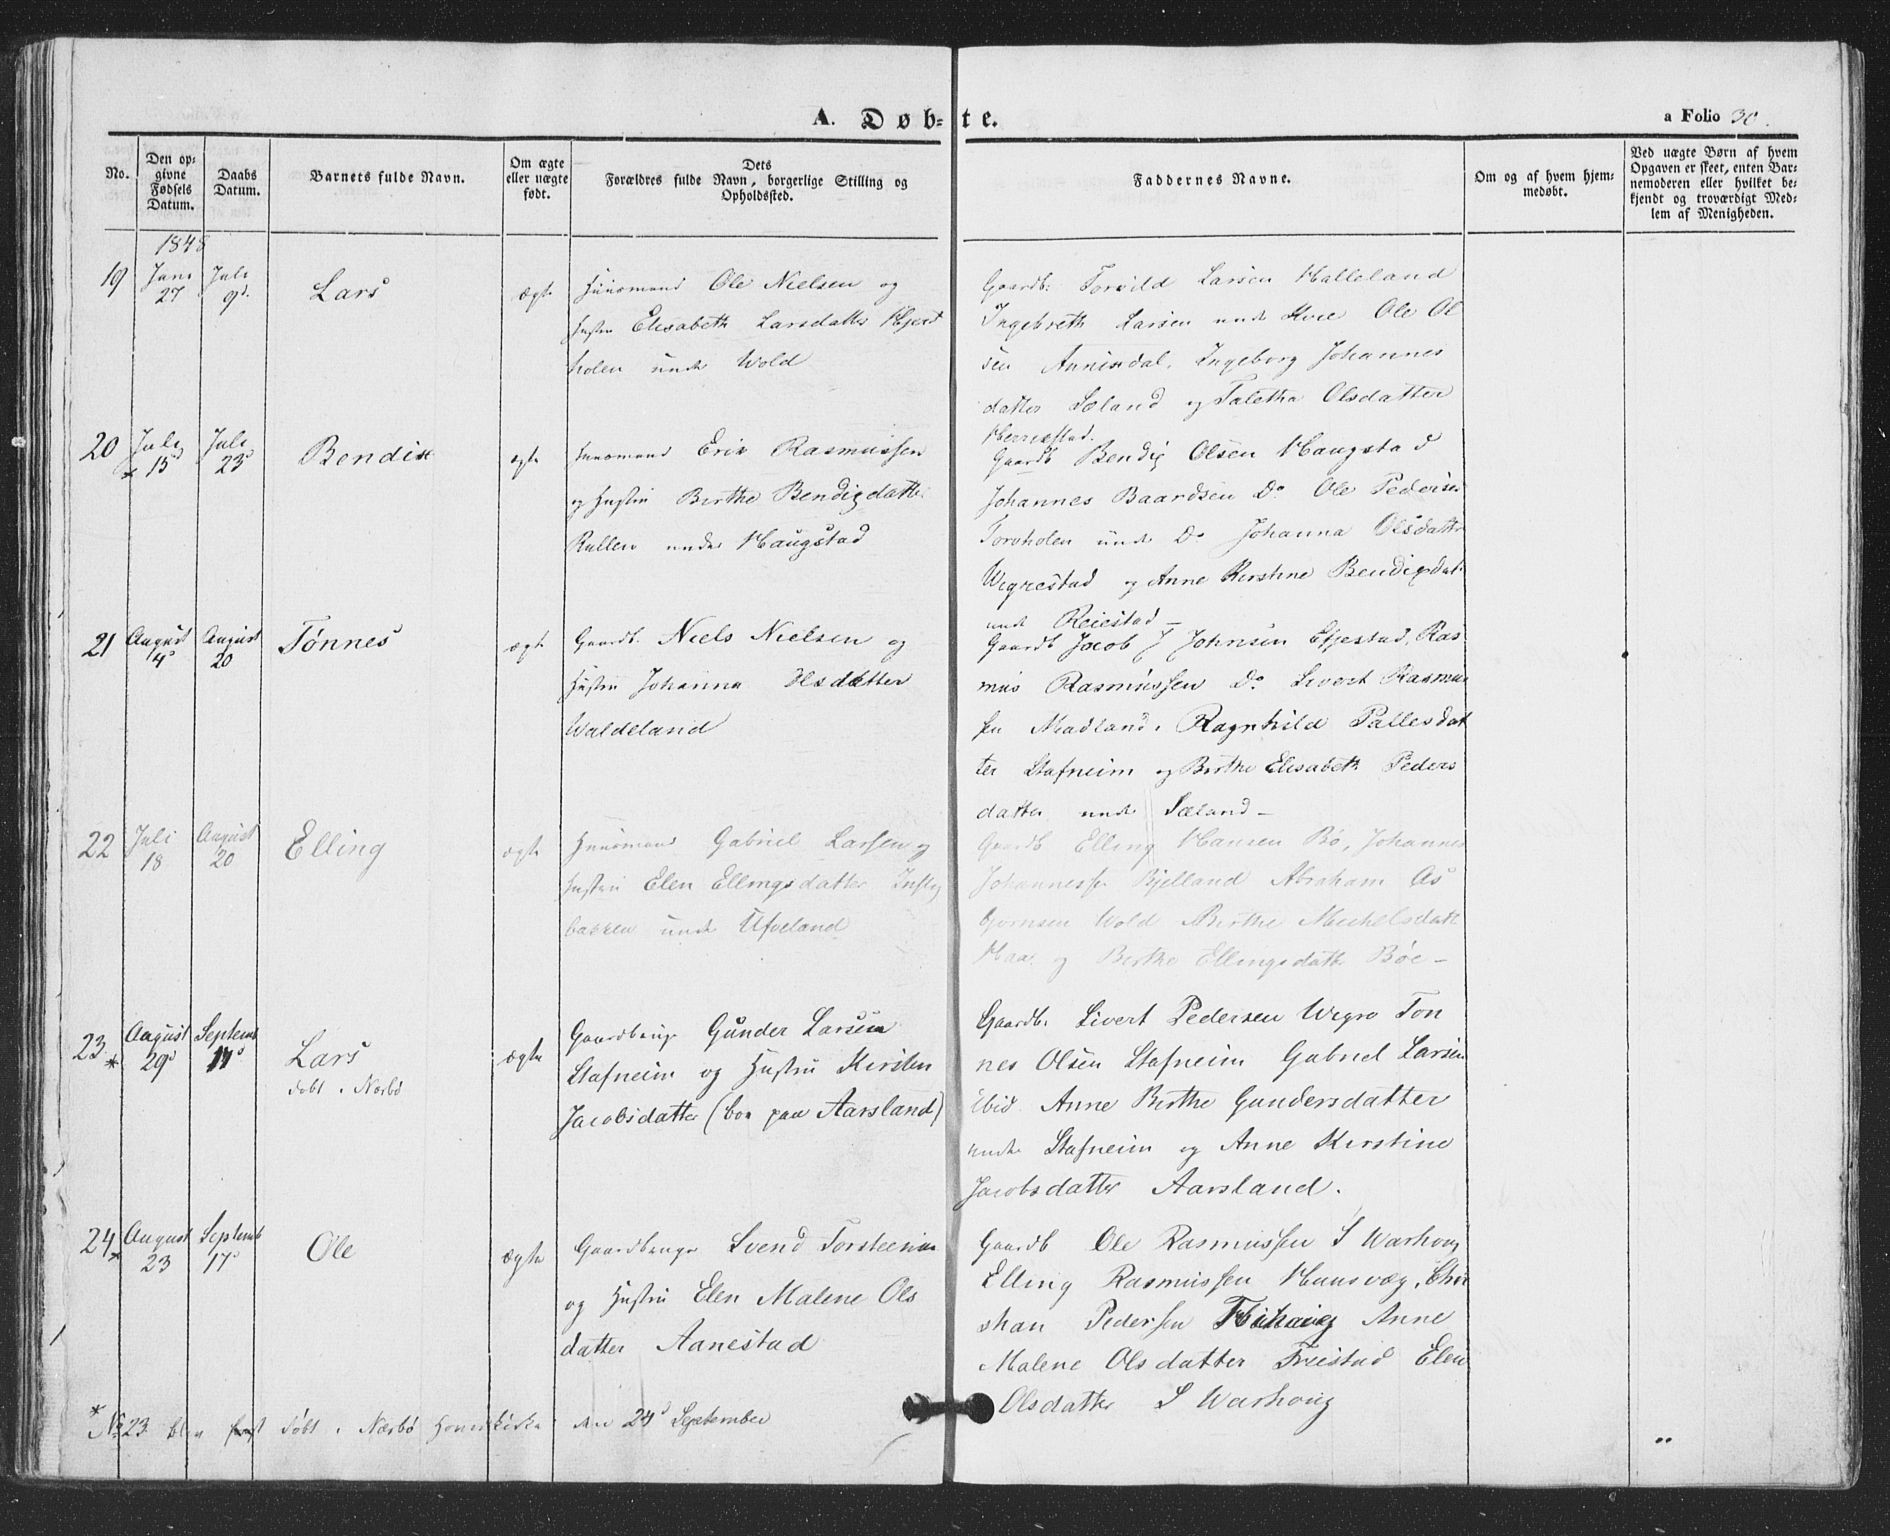 A. Døb-te.
a Folio 30.
No.
Den op-
givne
Fødsels
Datum.
Daabs
Datum.
Barnets fulde Navn.
Om ægte
eller uægte
født.
Dets
Forældres fulde Navn, borgerlige Stilling og
Opholdssted.
Faddernes Navne.
Om og af hvem hjem-
medøbt.
Ved uægte Børn af hvem
Opgaven er skeet, enten Bar-
nemoderen eller hvilket be-
kjendt og troværdigt Med-
lem af Menigheden.
1848
19
Juni
27
Juli
9d.
Lars
ægte
Huusmand Ole Nielsen og
Hustru Elisabeth Larsdatter
holen unde Wold
Gaardb: Torvild Larsen Halleland
Ingebreth Larsen unde Ole Ol
sen Annindal, Ingeborg Johannes
datter Søland og Taletha Olsdatter
Herrestad.
20
Juli
15d
Juli
23d
Bendix
ægte
Huusmand Erik Rasmussen
og Hustru Birthe Bendixdatter
Rullen under Haugstad
Gaardb Bendix Olsen Haugstad
Johannes Baardsen Do Ole Pedersen
Torvholen unde Do Johanna Olsdatter
Wigrestad og Anne Kirstine Bendixdat
unde Reiestad
21
August
4d
August
20
Tønnes
ægte
Gaardb. Niels Nielsen og
Hustru Johanna Olsdatter
Waldeland
Gaardb Jacob J Johnsen Efjestad, Ras
mus Rasmussen Do Sivert Rasmus
sen Madland, Ragnhild Pallesdat
ter Stafneim og Birthe Elisabeth Peders
datter unde Sæland
22
Juli
18
August
20
Elling
ægte
Huusmand Gabriel Larsen og
Hustru Elen Ellingsdatter
bakken unde Ufveland
Gaardb Elling Hansen Bø, Johannes
Johannessen Bjelland Abraham As
Wold Birthe Michelsdatt
Haa og Birthe Ellingsdatter Bøe
23 *
August
29d
Septemb
17d
Lars
døbt i Nærbø
ægte
Gaardbruge Gunder Larsen
Stafneim og Hustru Kirsten
Jacobsdatter (boe paa Aarsland)
Gaardb. Sivert Pedersen Wigre Ton
nes Olsen Stafneim Gabriel Larsen
ibid. Anne Birthe Gundersdatter
unde Stafneim og Anne Kirstine
Jacobsdatter Aarsland.
24
August
23
Septemb
17d
Ole
ægte
Gaardbruge Svend Torsteensen
og Hustru Elen Malene Ols
datter Aanestad
Gaardb Ole Rasmussen S Warhoug
Elling Rasmussen Chri
sthan Pedersen Anne
Malene Olsdatter Treestad Elen
Olsdatter S Warhoug
* No 23 blev først døbt i Nærbø den 24d September